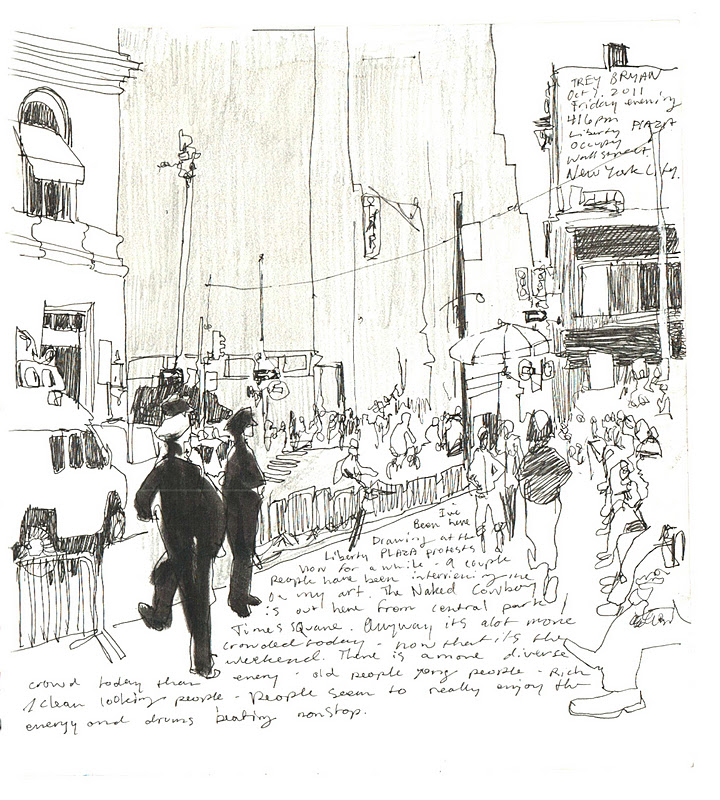 TREY BRYAN
Oct 7, 2011
Friday evening
416pm
Liberty PLAZA
Occupy
Wall Street.
New York City.
I've
Been here
Drawing at the
Liberty PLAZA protests
now for a while - a couple
people have been interviewing me
on my art. The Naked Cowboy
is out here from central park /
Times Square. Anyway its alot more
crowded today - now that its the
weekend. There is a more diverse
crowd today than - old people yong people - Rich
/ clean looking people - People seem to really enjoy the
energy and drums beating nonstop.